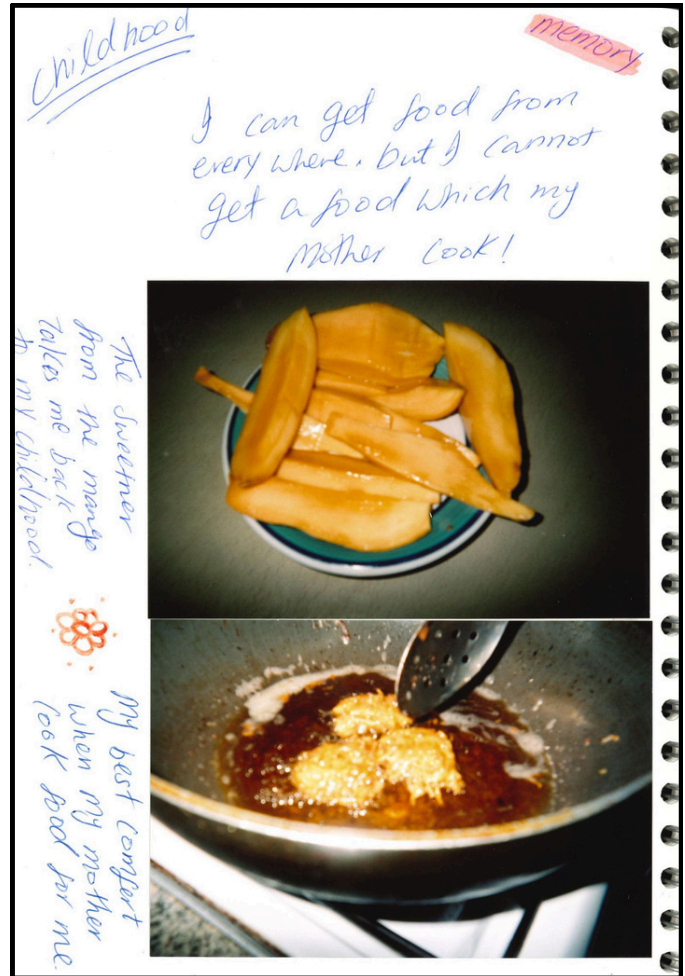 childhood
memory
I can get food from
everywhere. but I cannot
get a food which my
Mother Cook!
The Sweetner
from the mango
takes me back
to my childhood.
My best comfert
when my mother
Cook food for me.